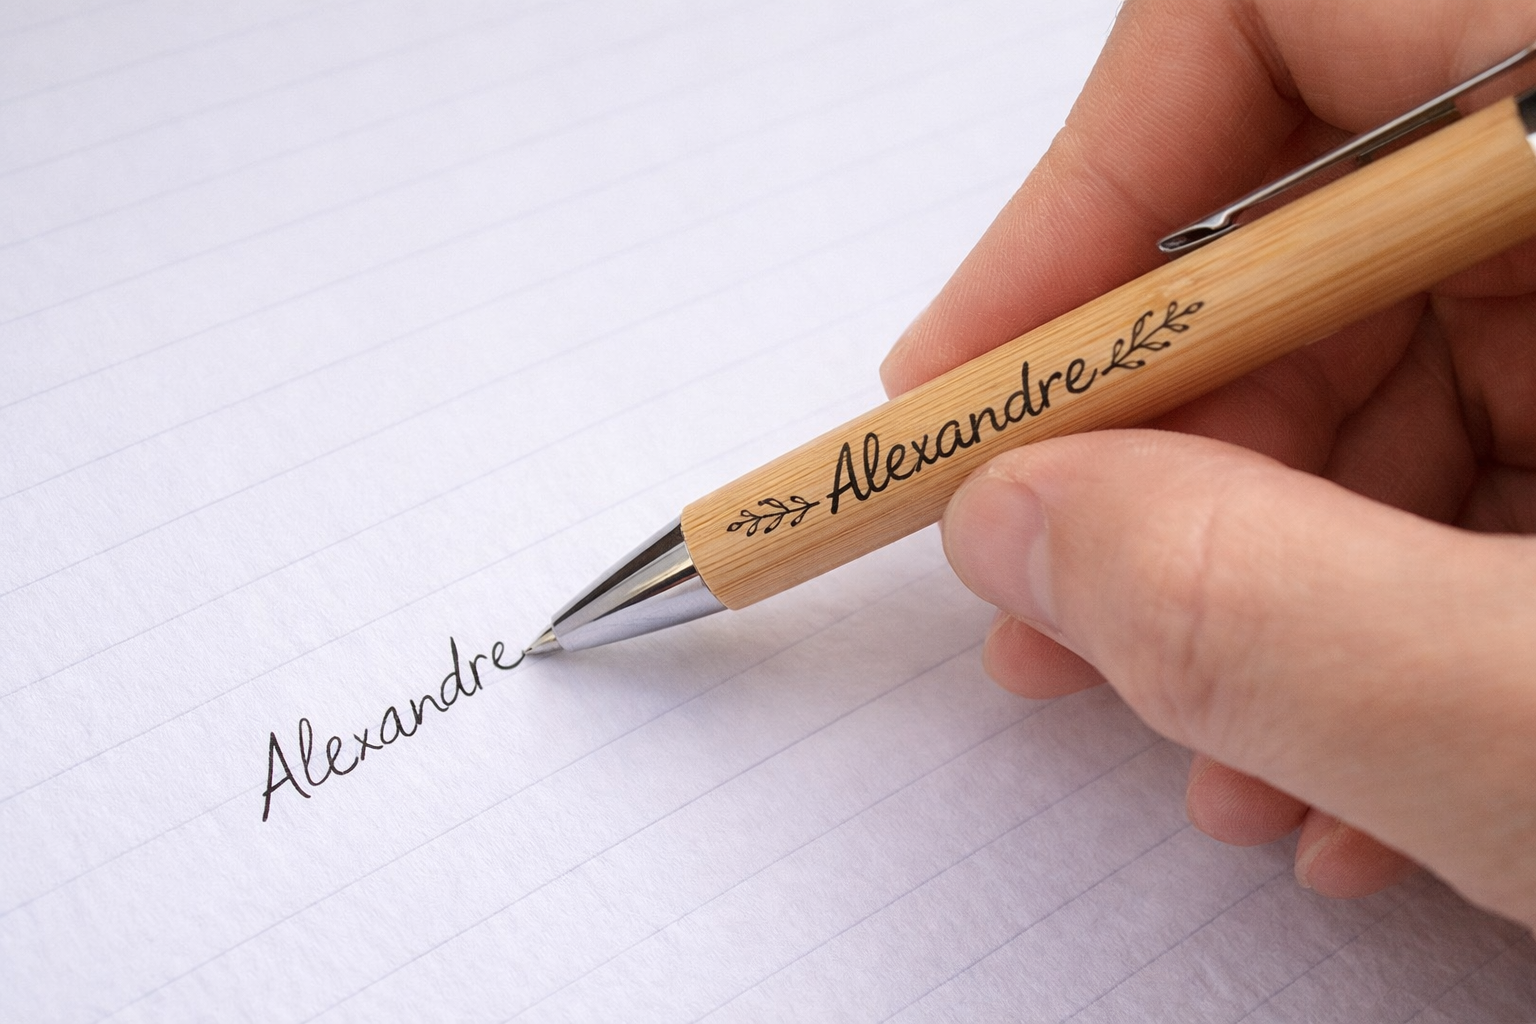 Alexandre
Alexandre